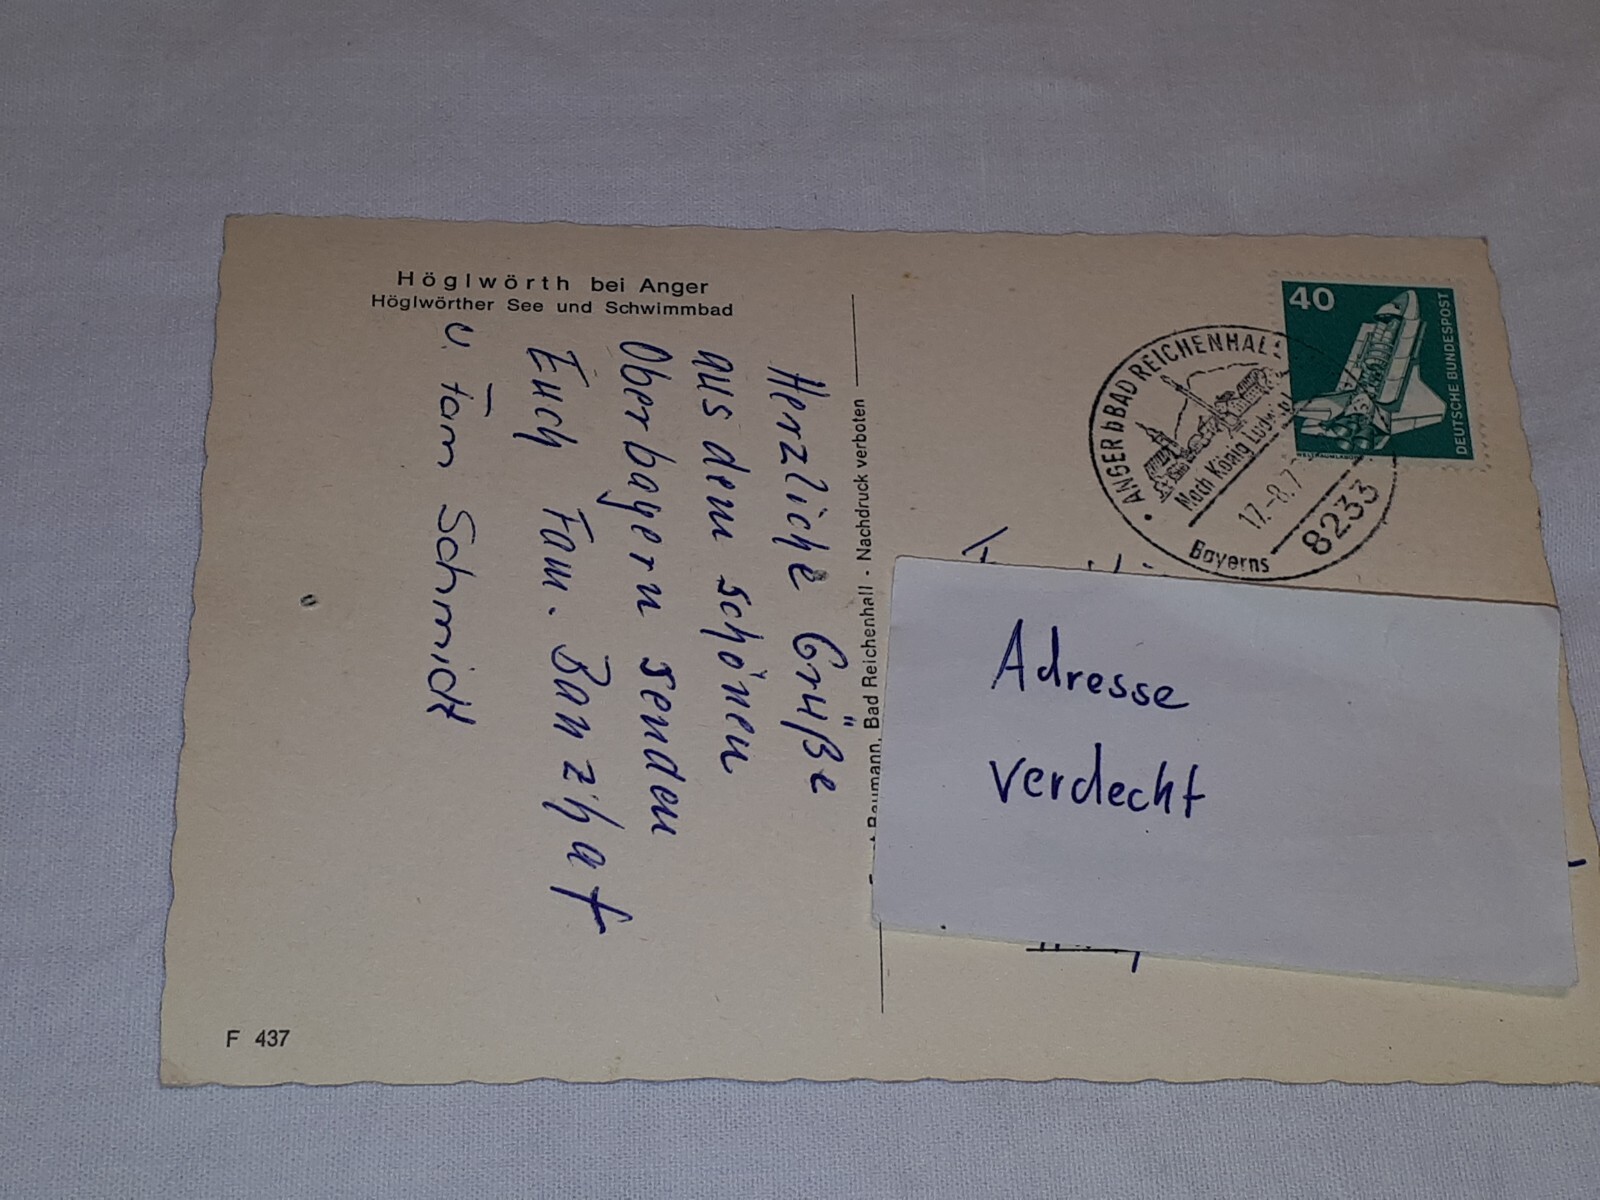 Höglwörth bei Anger
Höglwörther See und Schwimmbad
Herzliche Grüße
aus dem schönen
Oberbayern senden
Euch Fam. Banzhaf
u. Fam Schmidt
F 437
Baumann, Bad Reichenhall - Nachdruck verboten
40
DEUTSCHE BUNDESPOST
ANGER b BAD REICHENHALL
Nach König Ludwig
17.-8.7
8233
Bayerns
Adresse
verdeckt